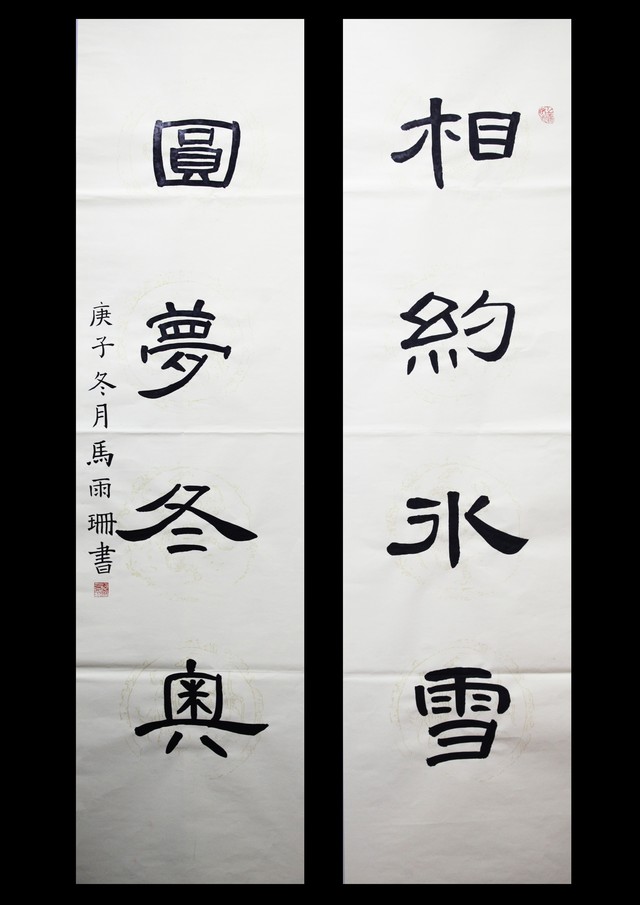 相約氷雪
圓夢冬奧
庚子冬月馬雨珊書